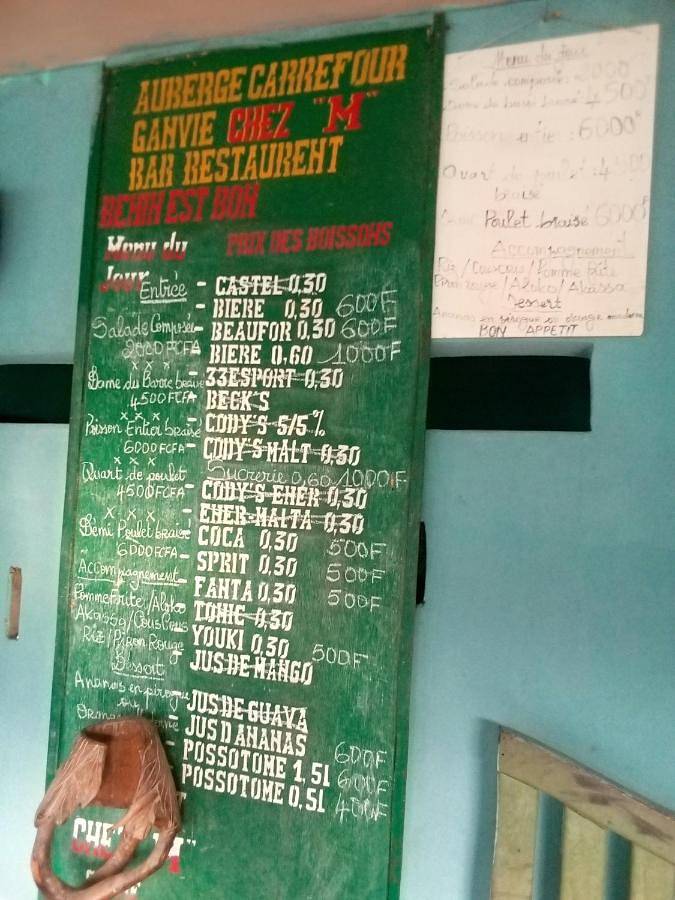 AUBERGE CARREFOUR
GANVIE CHEZ "M"
BAR RESTAURENT
BENIN EST BON
Menu du
Jour
PRIX DES BOISSONS
Entrée
Salade Composée
2000 FCFA
x x x
4500FCFA
x x x
Poisson Entier braisé
6000FCFA
x x x
Quart de poulet
4500FCFA
x x x
Demi Poulet braisé
6000FCFA
Accompagnement
Pomme Frite/Aloko
Akassa/CousCous
Riz/Piron Rouge
Dessert
Ananas en pirogue
- CASTEL 0,30
- BIERE 0,30 600F
- BEAUFOR 0,30 600F
- BIERE 0.60 1000F
- 33ESPORT 0,30
- BECK'S
- CODY'S 5/5%
- CODY'S MALT 0,30
Sucrerie 0,60 1000F
- CODY'S ENER 0,30
- ENER-MALTA 0,30
COCA 0,30 500F
- SPRIT 0,30 500F
FANTA 0,30 500F
TONIC 0,30
YOUKI 0,30 500F
JUS DE MANGO
JUS DE GUAVA
JUS D ANANAS 600F
POSSOTOME 1,5l 600F
POSSOTOME 0,5l 400F
Menu du Jour
Salade composée :
4500F
Poisson entier : 6000F
Quart de poulet : 4
braisé
Poulet braisé 6000F
Accompagnement
Riz/Couscous/Pomme frite
Piron rouge/Aloko/Akassa
Dessert
Ananas en pirogue ou orange
BON APPETIT